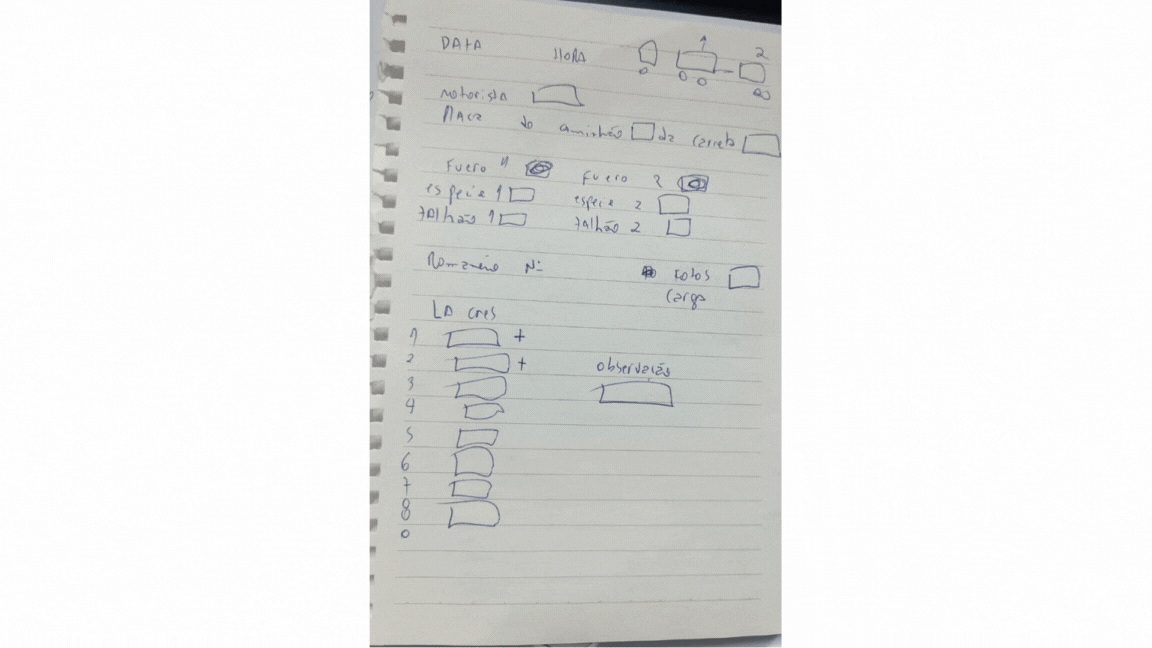 DATA HORA 1 2
motorista
Placa do caminhão da carreta
Fuero 1 Fuero 2
especie 1 especie 2
talhão 1 talhão 2
Romaneio Nº Fotos
carga
1 +
2 +
3 observação
4
5
6
7
8
0